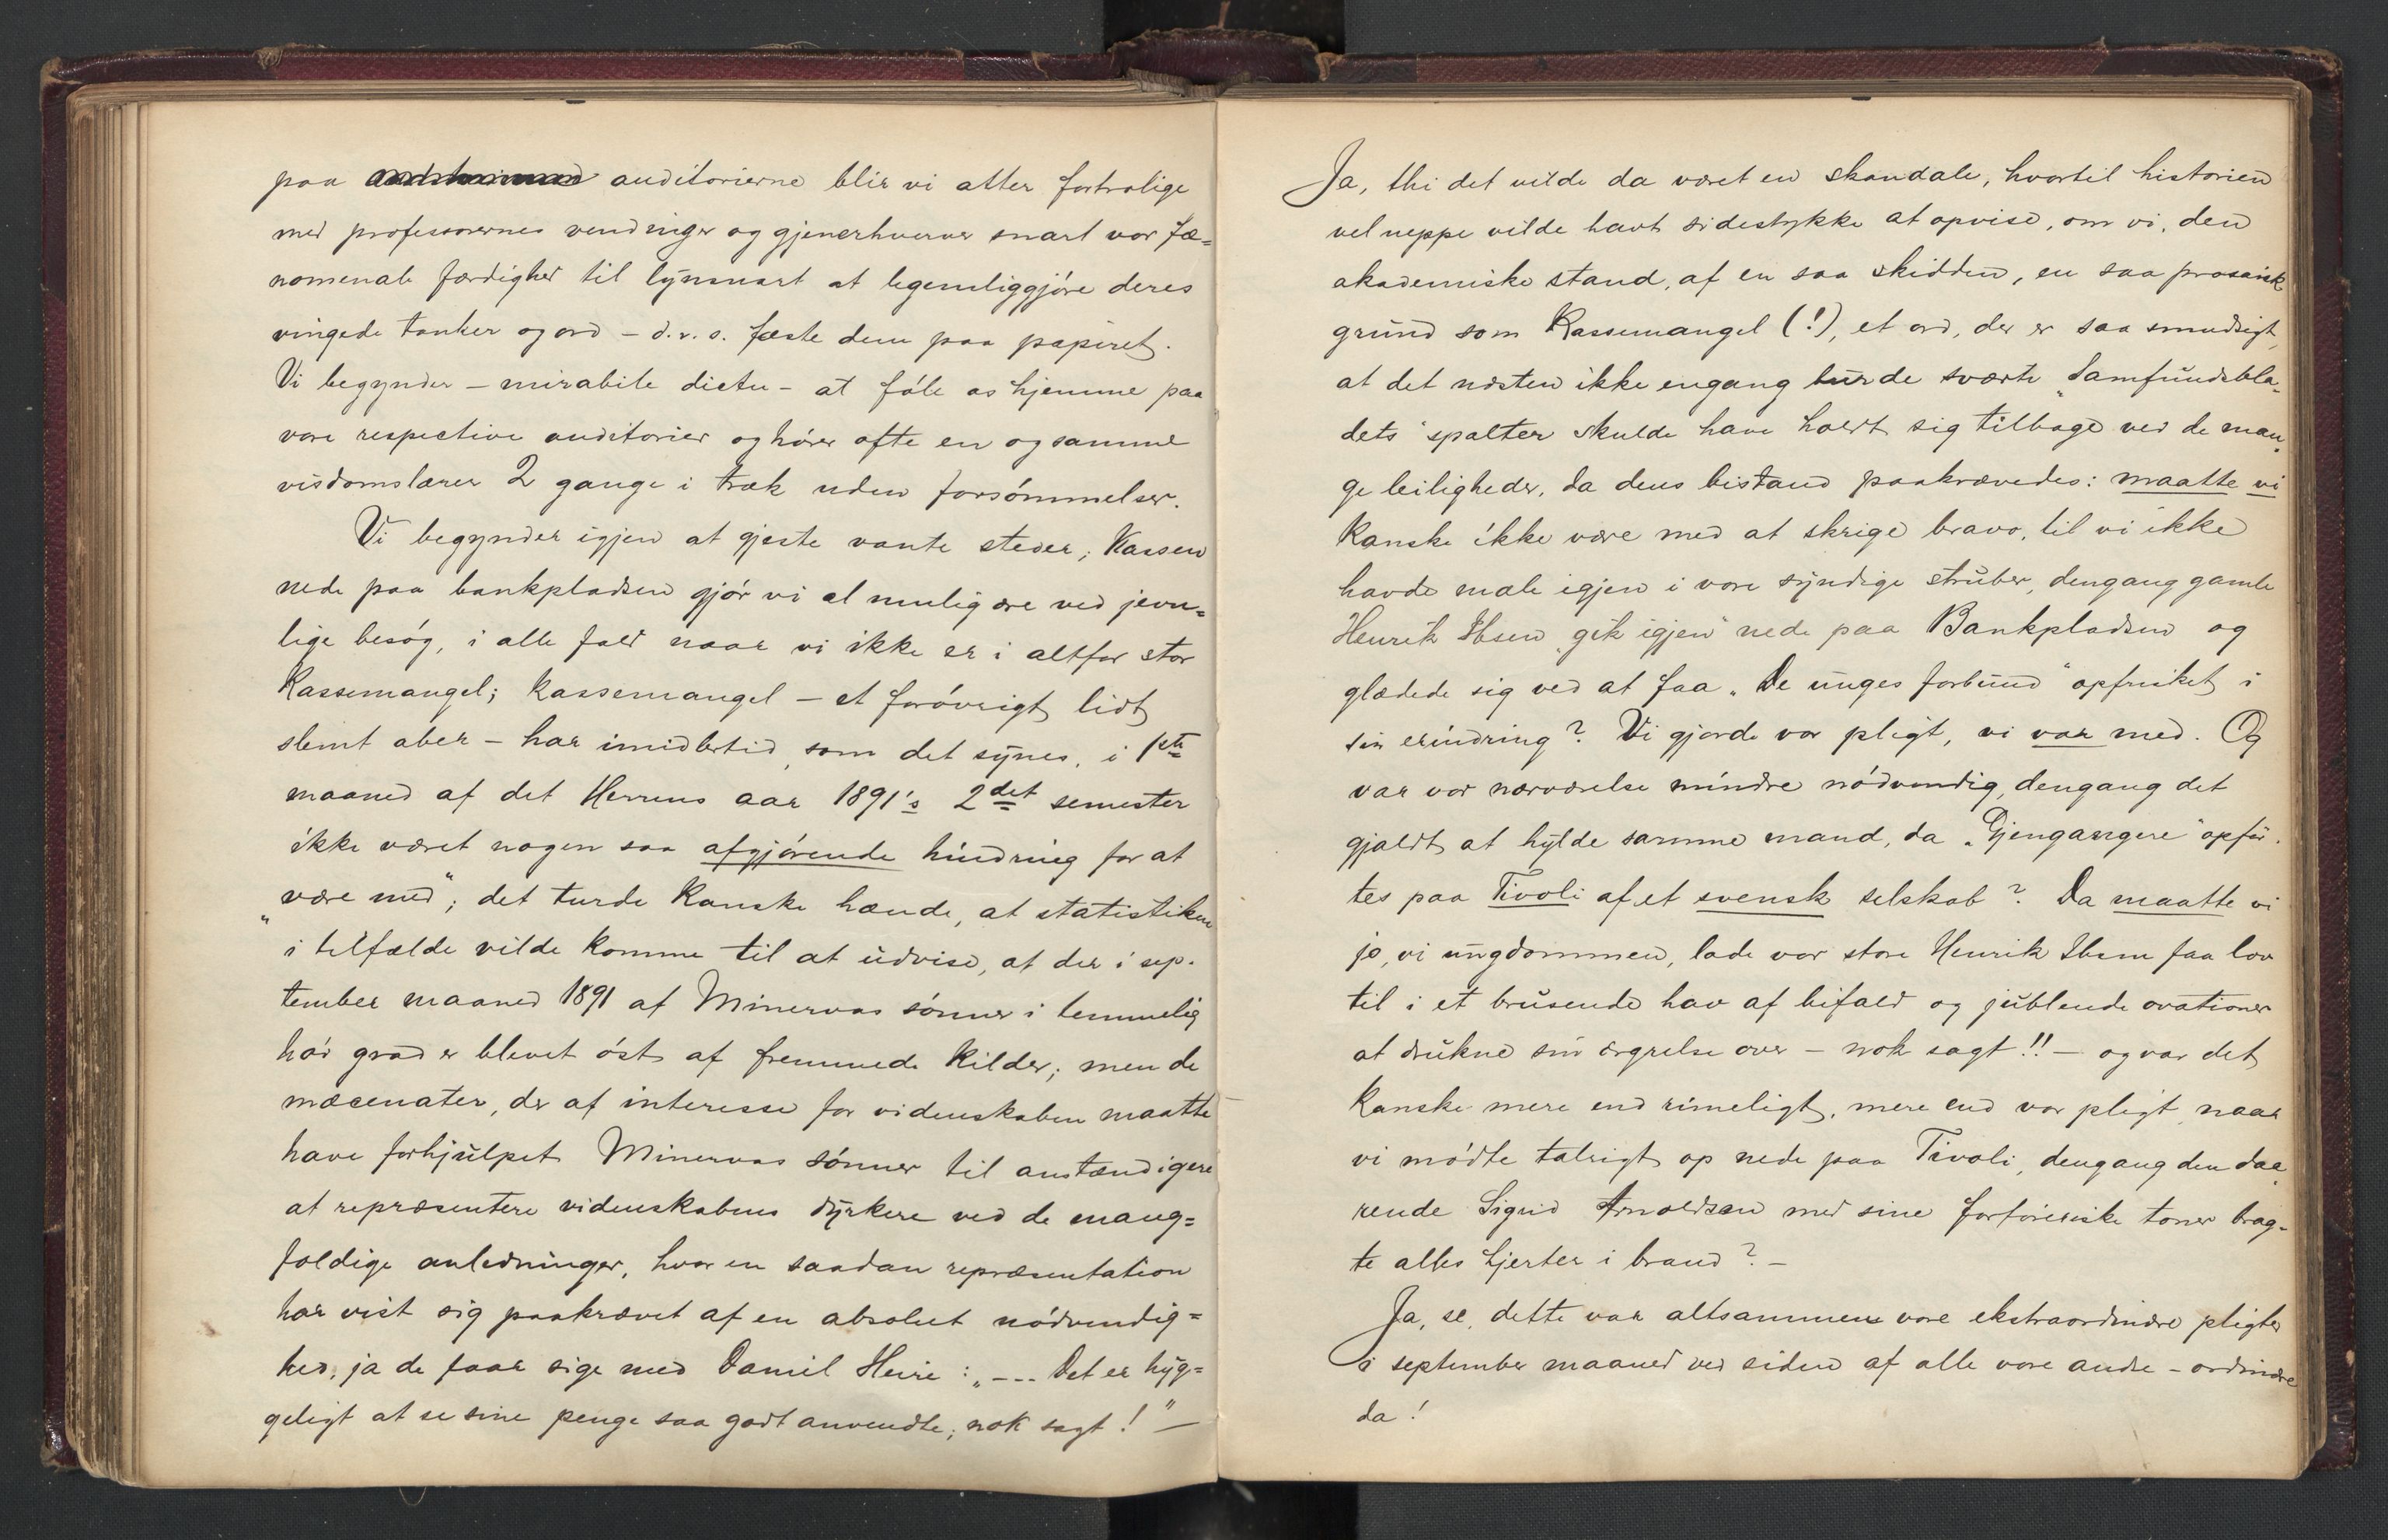 paa auditorierne blir vi atter fortrolige
med professorernes vendinger og gjenerhverver snart vor fæ=
nomenale færdighed til lynsnart at legemliggjøre deres
vingede tanker og ord – d.v.s. fæste dem paa papiret.
Vi begynder – mirabile dictu – at føle os hjemme paa
vore respective auditorier og hører ofte en og samme
visdomslærer 2 gange i træk uden forsømmelser.
Vi begynder igjen at gjeste vante steder; Kassen
nede paa bankpladsen gjør vi al mulig ære ved jevn=
lige besøg, i alle fald naar vi ikke er i altfor stor
Kassemangel; kassemangel – et forøvrigt lidt
slemt aber – har imidlertid, som det synes, i 1ste
maaned af det Herrens aar 1891's 2det semester
ikke været nogen saa afgjørende hindring for at
„være med“; det turde kanske hænde, at statistiken
i tilfælde vilde komme til at udvise, at der i sep-
tember maaned 1891 af Minervas sønner i temmelig
høi grad er blevet øst af fremmede kilder; men de
mæcenater, der af interesse for videnskaben maatte
have forhjulpet Minervas sønner til anstændigere
at repræsentere videnskabens dyrkere ved de mang=
foldige anledninger, hvor en saadan repræsentation
har vist sig paakrævet af en absolut nødvendig=
hed, ja de faar sige med Daniel Heire: „--- Det er hyg=
geligt at se sine penge saa godt anvendte; nok sagt!“ –
Ja, thi det vilde da været en skandale, hvortil historien
vel neppe vilde havt sidestykke at opvise, om vi, den
akademiske stand, af en saa skidden, en saa prosaisk
grund som Kassemangel (!), et ord, der er saa smudsigt,
at det næsten ikke engang burde sværte „Samfundsbla-
dets“ spalter skulde have holdt sig tilbage ved de man-
ge leiligheder, da dens bistand paakrævedes: maatte vi
kanske ikke være med at skrige bravo, til vi ikke
havde mæle igjen i vore syndige struber, dengang gamle
Henrik Ibsen „gik igjen“ nede paa Bankpladsen og
glædede sig ved at faa „De unges forbund“ opfrisket i
sin erindring? Vi gjorde vor pligt, vi var med. Og
var vor nærværelse mindre nødvendig, dengang det
gjaldt at hylde samme mand, da „Gjengangere“ opfør-
tes paa Tivoli af et svensk selskab? Da maatte vi
jo, vi ungdommen, lade vor store Henrik Ibsen faa lov
til i et brusende hav af bifald og jublende ovationer
at drukne sin ærgrelse over – nok sagt!! – og var det
kanske mere end rimeligt, mere end vor pligt, naar
vi mødte talrigt op nede paa Tivoli, dengang den daa-
rende Sigrid Arnoldson med sine forføreriske toner brag-
te alles hjerter i brand? –
Ja, se, dette var altsammen vore ekstraordinære pligter
i september maaned ved siden af alle vore andre – ordinære
da!